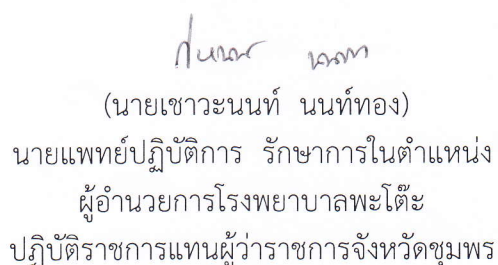 (นายเชาวะนนท์ นนท์ทอง)
นายแพทย์ปฏิบัติการ รักษาการในตำแหน่ง
ผู้อำนวยการโรงพยาบาลพะโต๊ะ
ปฏิบัติราชการแทนผู้ว่าราชการจังหวัดชุมพร